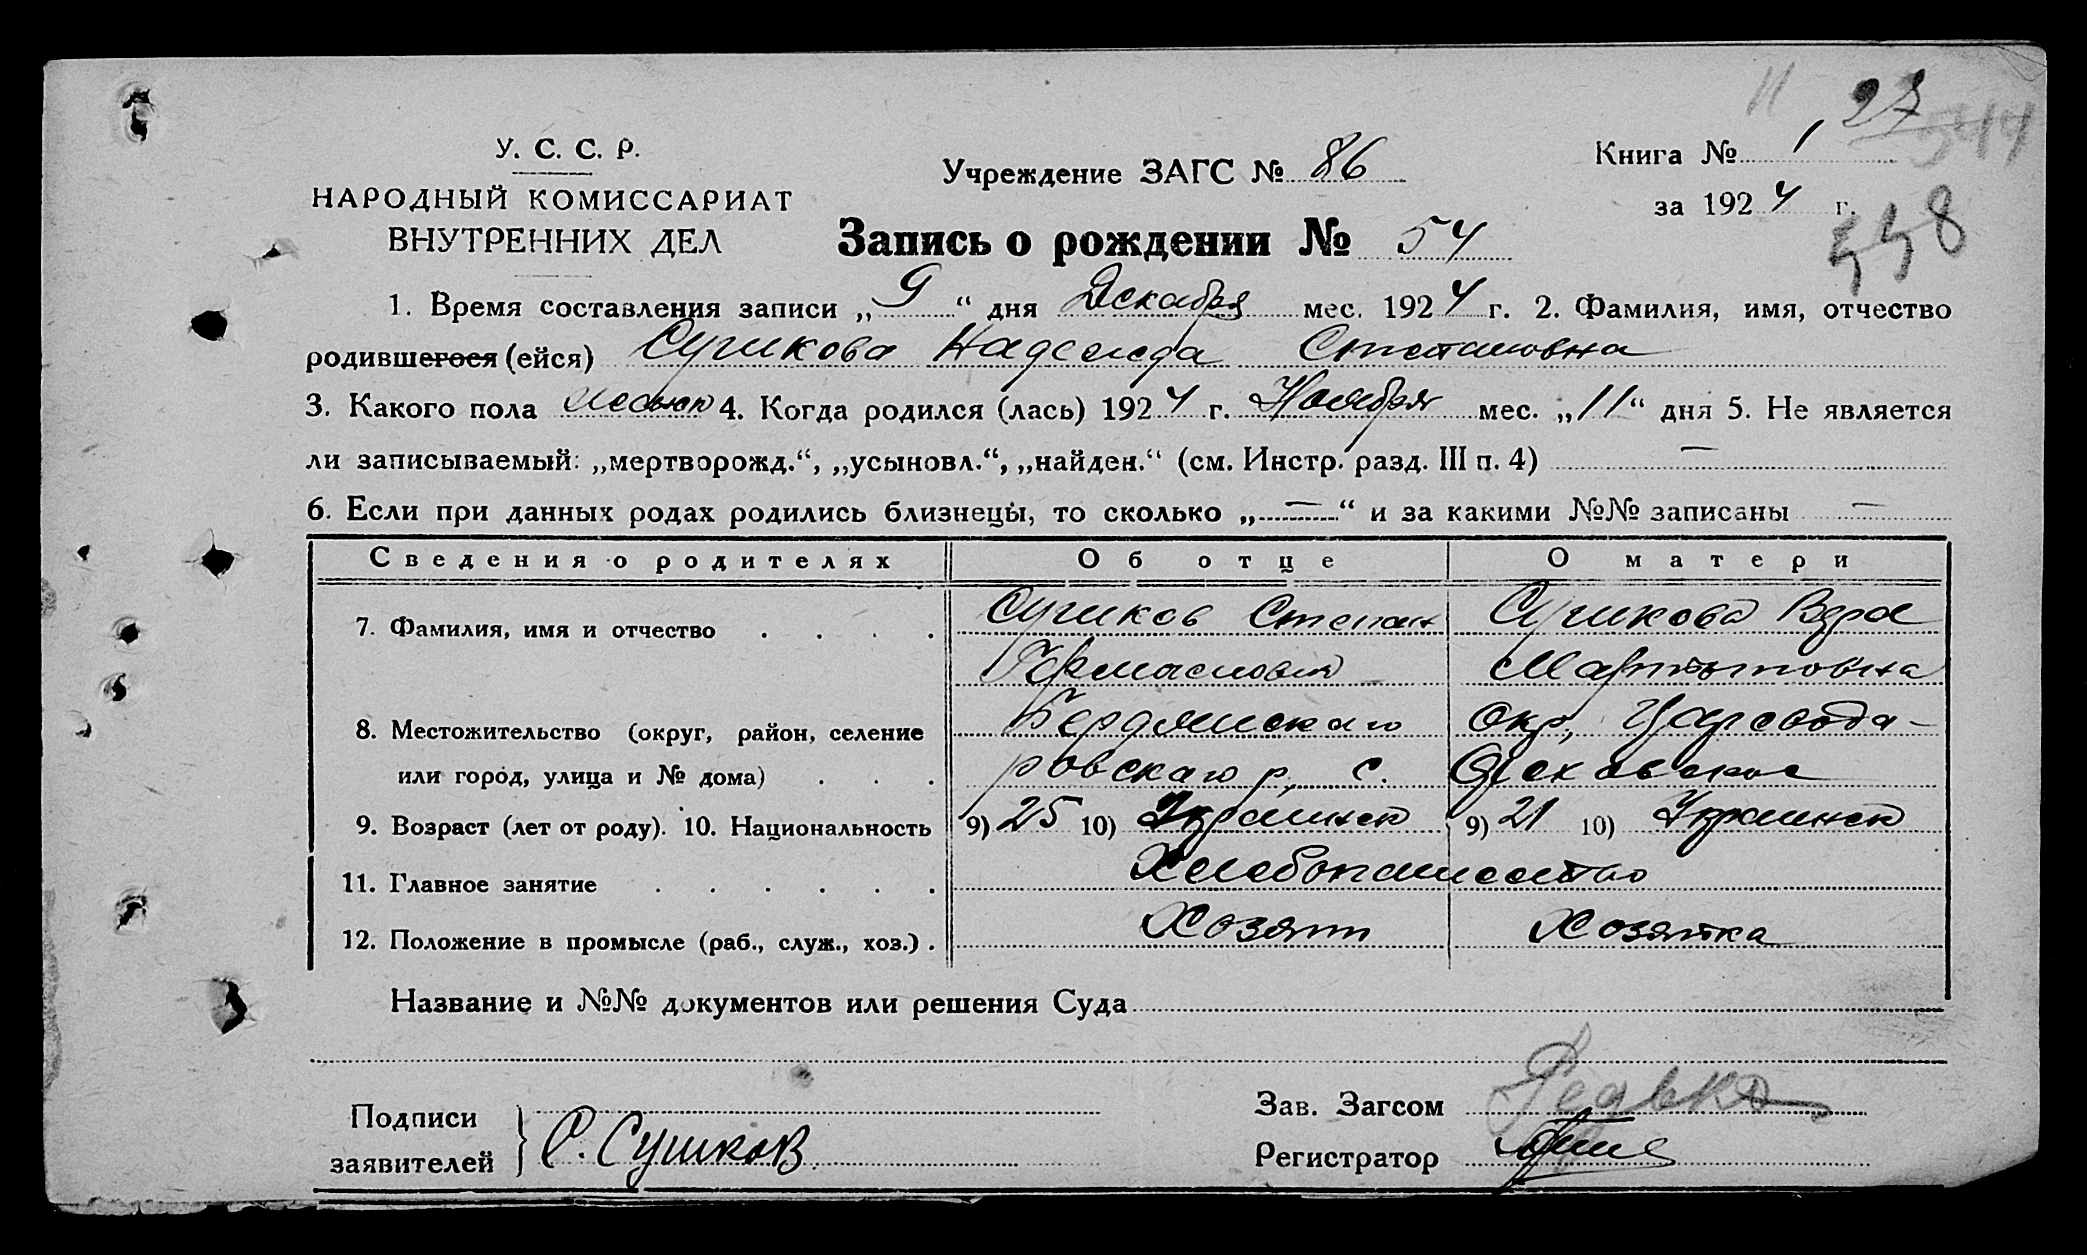 11 27
344
У. С. С. Р.
НАРОДНЫЙ КОМИССАРИАТ
ВНУТРЕННИХ ДЕЛ
Учреждение ЗАГС № 86
Книга № 1
за 1924 г.
548
Запись о рождении № 54
1. Время составления записи „9“ дня Декабря мес. 1924 г. 2. Фамилия, имя, отчество
родившегося (ейся) Сушкова Надежда Степановна
3. Какого пола женск 4. Когда родился (лась) 1924 г. Ноября мес. „11“ дня 5. Не является
ли записываемый: „мертворожд.“, „усыновл.“, „найден.“ (см. Инстр. разд. III п. 4) —
6. Если при данных родах родились близнецы, то сколько „—“ и за какими №№ записаны —
Сведения о родителях Об отце О матери
7. Фамилия, имя и отчество Сушков Степан Сушкова Вера
Мартыновна
8. Местожительство (округ, район, селение Бердянскаго Окр, Царевода-
или город, улица и № дома) ровскаго р. с.
9. Возраст (лет от роду). 10. Национальность 9) 25 10) Украинск 9) 21 10) Украинск
11. Главное занятие Хлебопашество
12. Положение в промысле (раб., служ., хоз.) Хозяин Хозяйка
Название и №№ документов или решения Суда
Подписи
заявителей С. Сушков
Зав. Загсом Редько
Регистратор